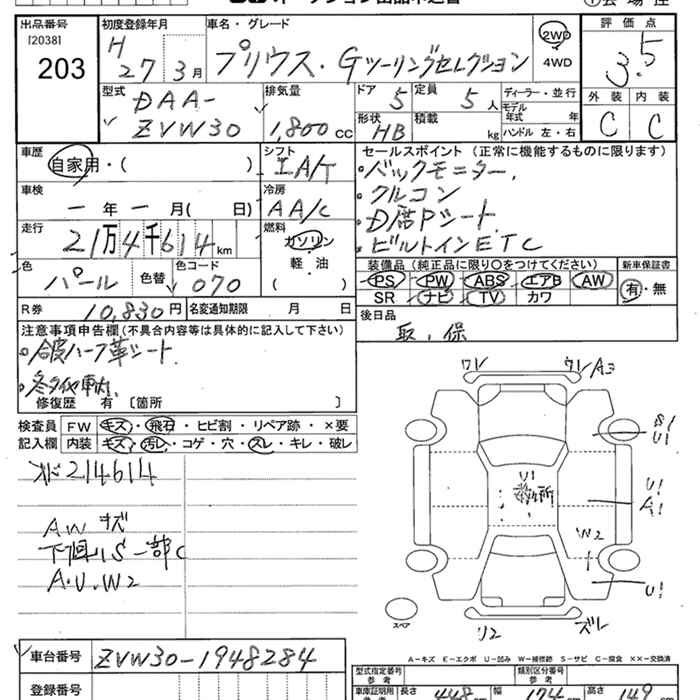 出品番号 初度登録年月 車名・グレード 評価点
[2038]
203
H 27年 3月
プリウス・Gツーリングセレクション
2WD
4WD
3.5
型式 排気量 ドア 定員 ディーラー・並行 外装 内装
DAA-
ZVW30
1,800cc
5 5人
モデル年式 年
形状 積載
HB kg
ハンドル 左・右
C C
車歴 シフト セールスポイント (正常に機能するものに限ります)
自家用・( )
IA/T
・バックモニター.
車検 冷房
・クルコン
ー年ー月( 日)
AA/C
・D席Pシート
走行 燃料
21万4千614km
ガソリン
・ビルトインETC
色 色替 色コード 軽・油
パール 070
( )
装備品 (純正品に限り○をつけてください) 新車保証書
PS PW ABS エアB AW
SR ナビ TV カワ
有・無
R券 10,830円 名変通知期限 月 日
後日品
取.保
注意事項申告欄(不具合内容等は具体的に記入して下さい)
修復歴 有 [箇所 ]
検査員 FW キズ・飛石・ヒビ割・リペア跡・×要
記入欄 内装 キズ・汚レ・コゲ・穴・スレ・キレ・破レ
214614
AWキズ
下廻りS一部C
A.U.W2
ワレ ワレ A3
S1
U1
U1
U1
A1
W2
U1
リ2 ズレ
スペア
A-キズ E-エクボ U-凹み W-補修跡 S-サビ C-腐食 ××-交換済
車台番号 ZVW30-1948284
登録番号
型式指定番号 参考 類別区分番号 参考
車庫証明用 参考 長さ 448cm 幅 174cm 高さ 149